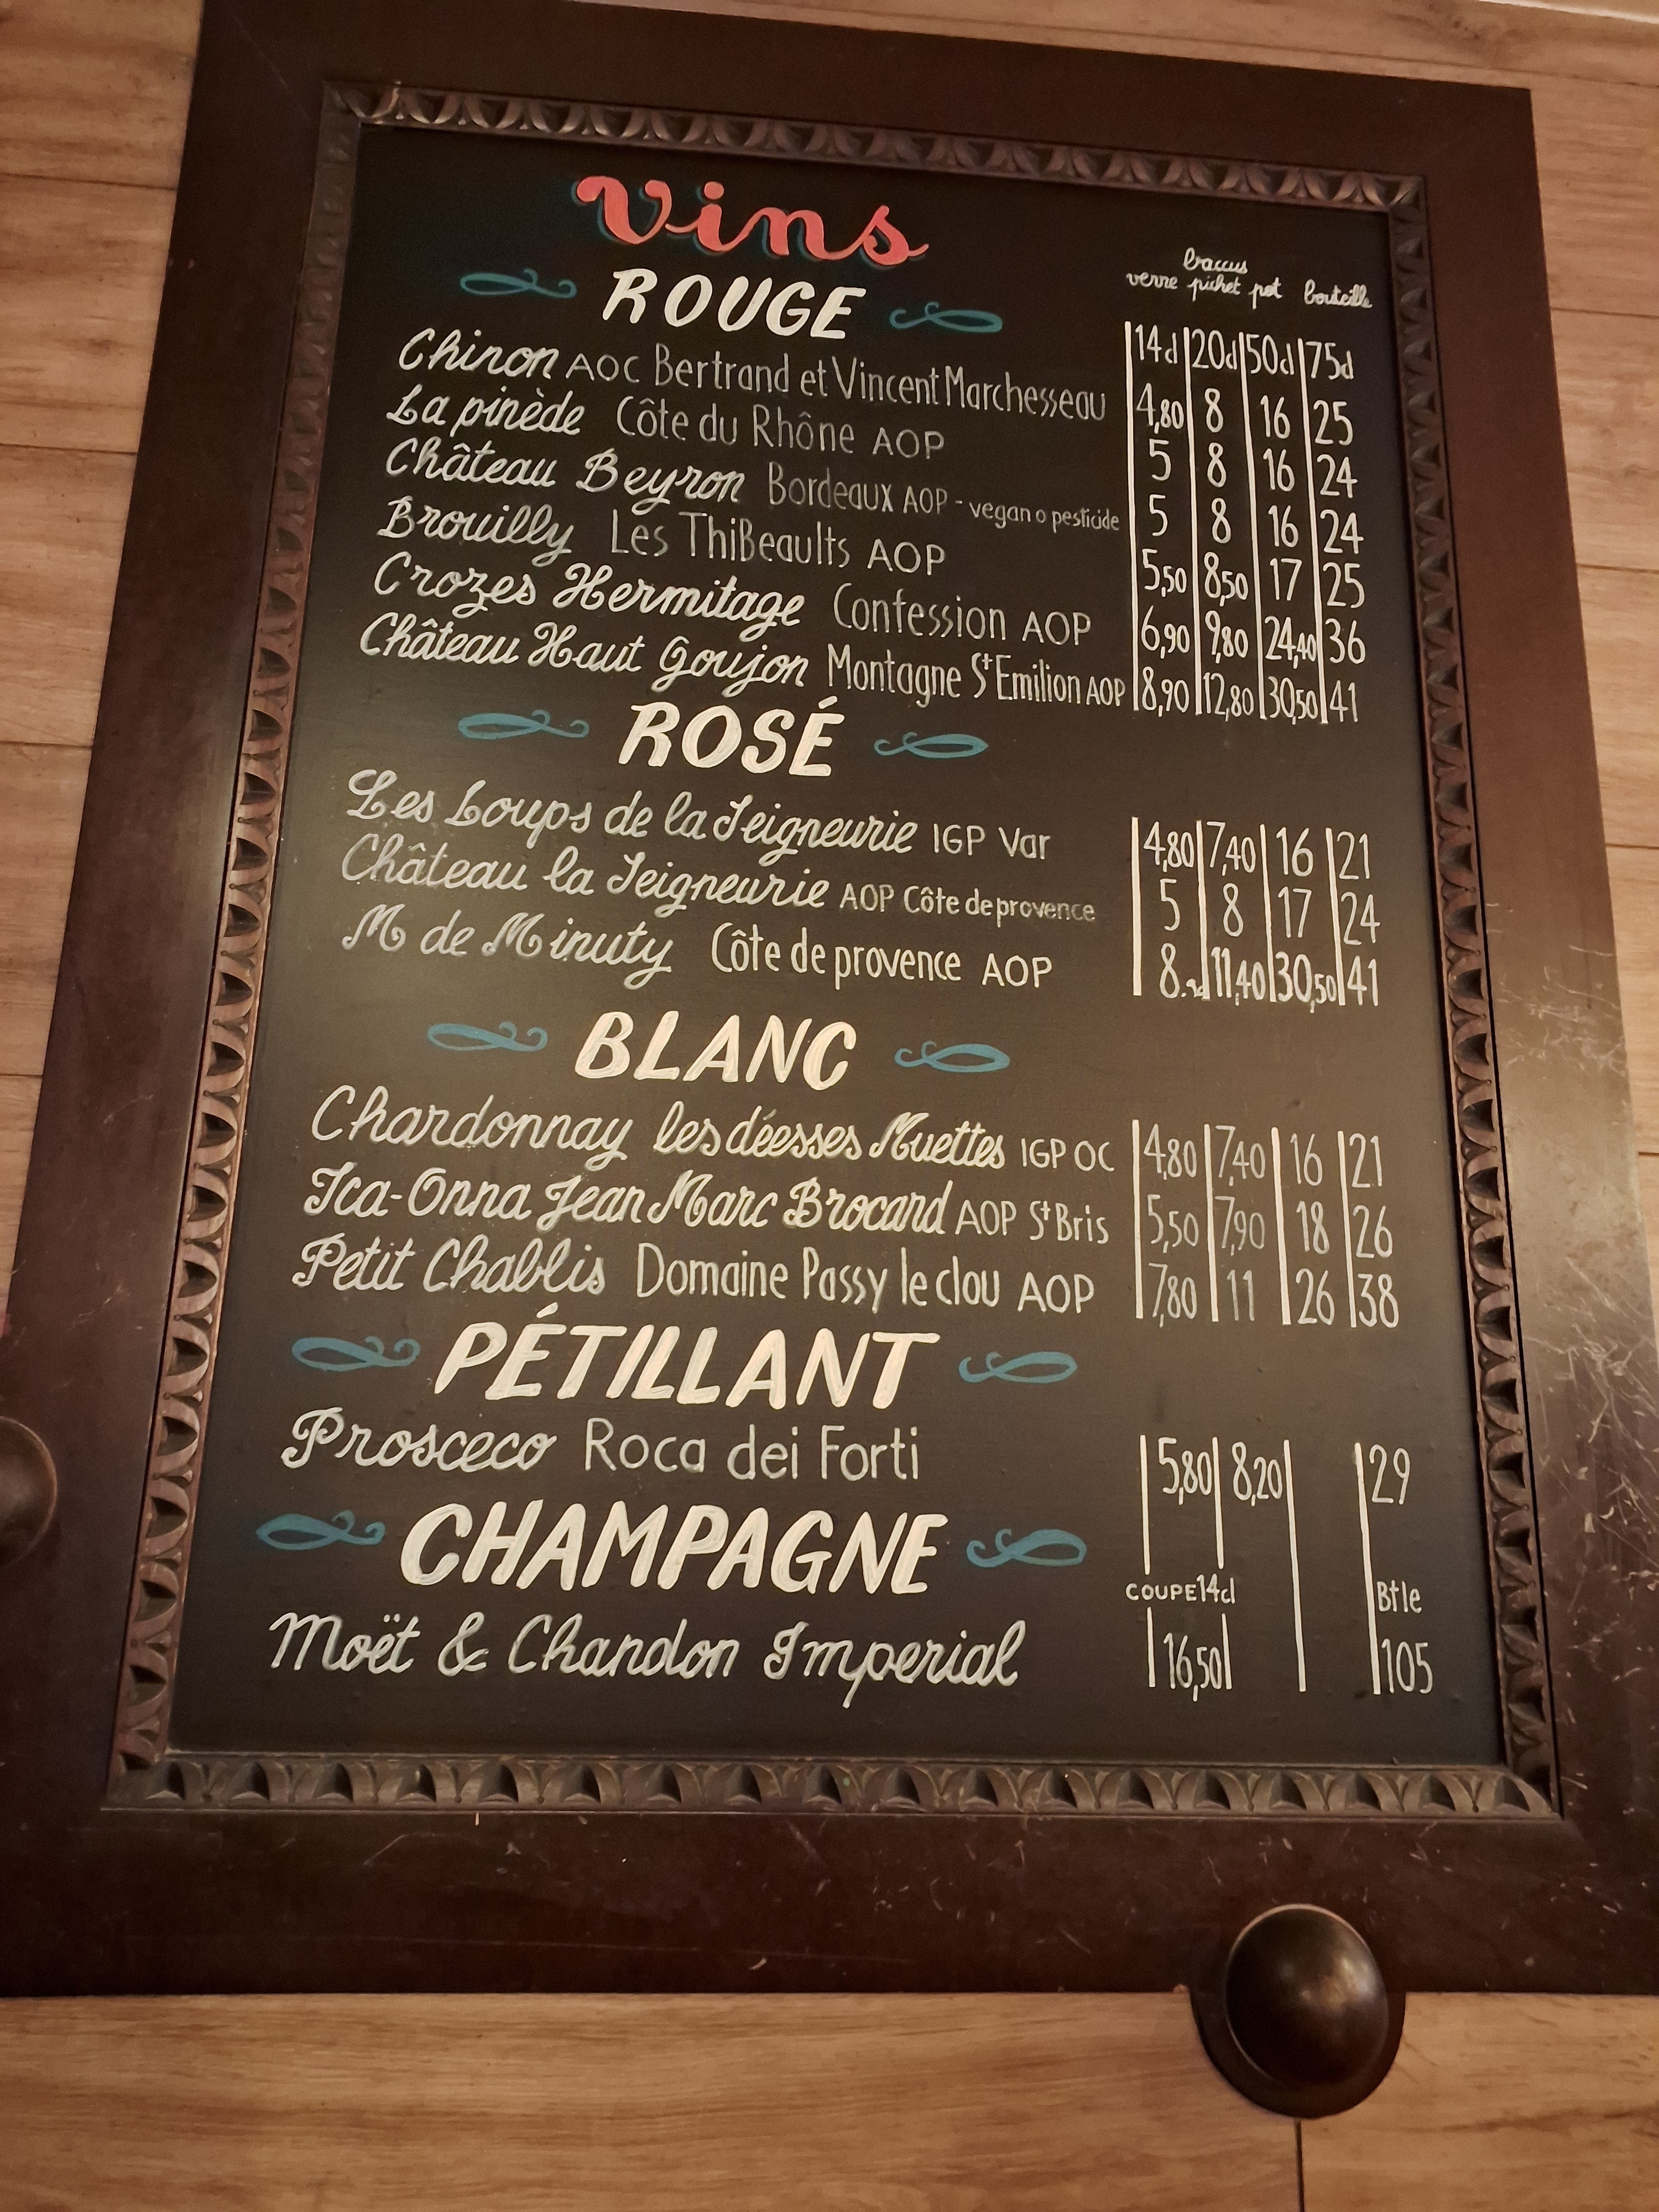 Vins
baccus
verne pichet pot bouteille
ROUGE
14cl 20cl 50cl 75cl
Chinon AOC Bertrand et Vincent Marchesseau 4,80 8 16 25
La pinède Côte du Rhône AOP 5 8 16 24
Château Beyron Bordeaux AOP - vegan o pesticide 5 8 16 24
Brouilly Les ThiBeaults AOP 5,50 8,50 17 25
Crozes Hermitage Confession AOP 6,90 9,80 24,40 36
Château Haut Goujon Montagne St Emilion AOP 8,90 12,80 30,50 41
ROSÉ
Les Loups de la Seigneurie IGP Var 4,80 7,40 16 21
Château la Seigneurie AOP Côte de provence 5 8 17 24
M de Minuty Côte de provence AOP 11,40 30,50 41
BLANC
Chardonnay les déesses Muettes IGP OC 4,80 7,40 16 21
Ica-Onna Jean Marc Brocard AOP St Bris 5,50 7,90 18 26
Petit Chablis Domaine Passy le clou AOP 7,80 11 26 38
PÉTILLANT
Prosceco Roca dei Forti 5,80 8,20 29
CHAMPAGNE
COUPE 14cl Btle
Moët & Chandon Imperial 16,50 105